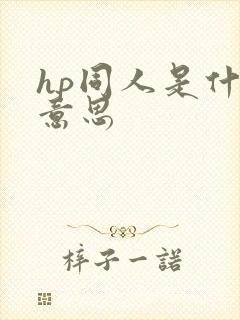 hp同人是什
意思
梓子一諾